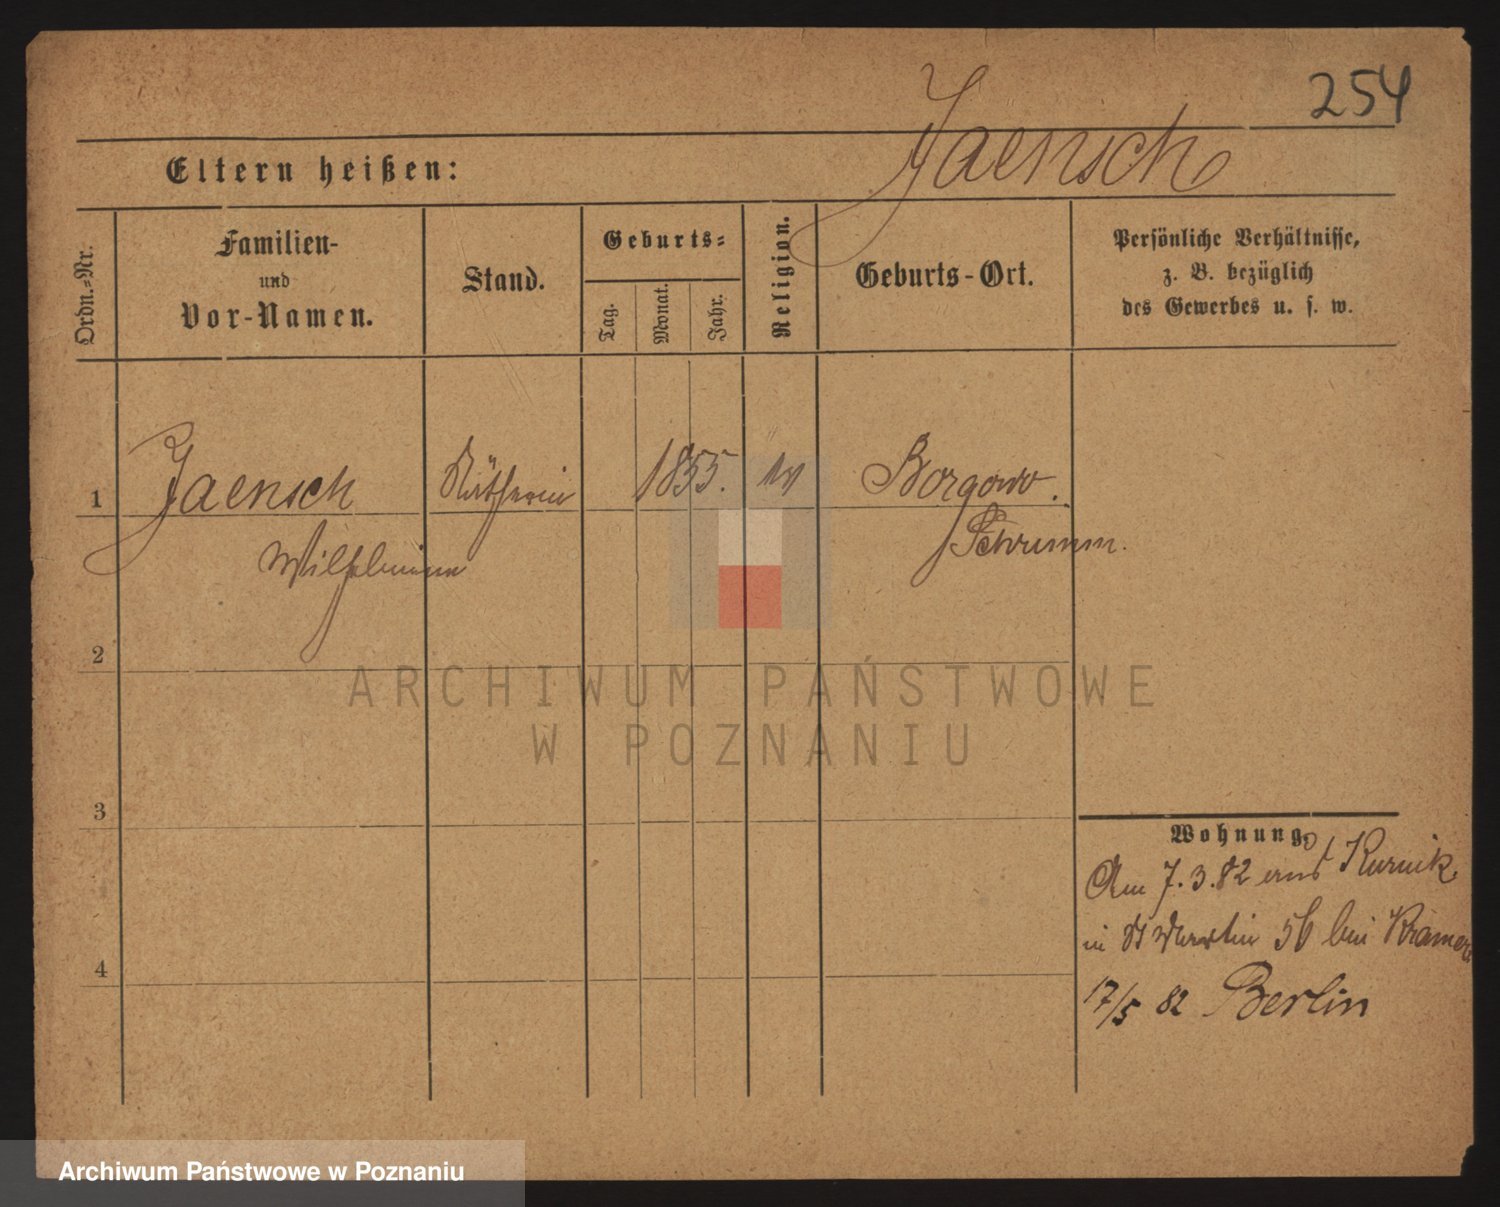 254
Jaensch
Eltern heißen:
Ordn.-Nr.
Familien-
und
Vor-Namen.
Stand.
Geburts-
Tag.
Monat.
Jahr.
Religion.
Geburts-Ort.
Persönliche Verhältnisse,
z. B. bezüglich
des Gewerbes u. s. w.
1 Jaensch Nätherin 1855. ev Borgowo.
Wilhelmine Schrimm.
2
ARCHIWUM PAŃSTWOWE
W POZNANIU
3
Wohnung.
Am 7.3.82 aus Kurnik
in St Martin 56 bei Kramer
4
17/5 82 Berlin
Archiwum Państwowe w Poznaniu